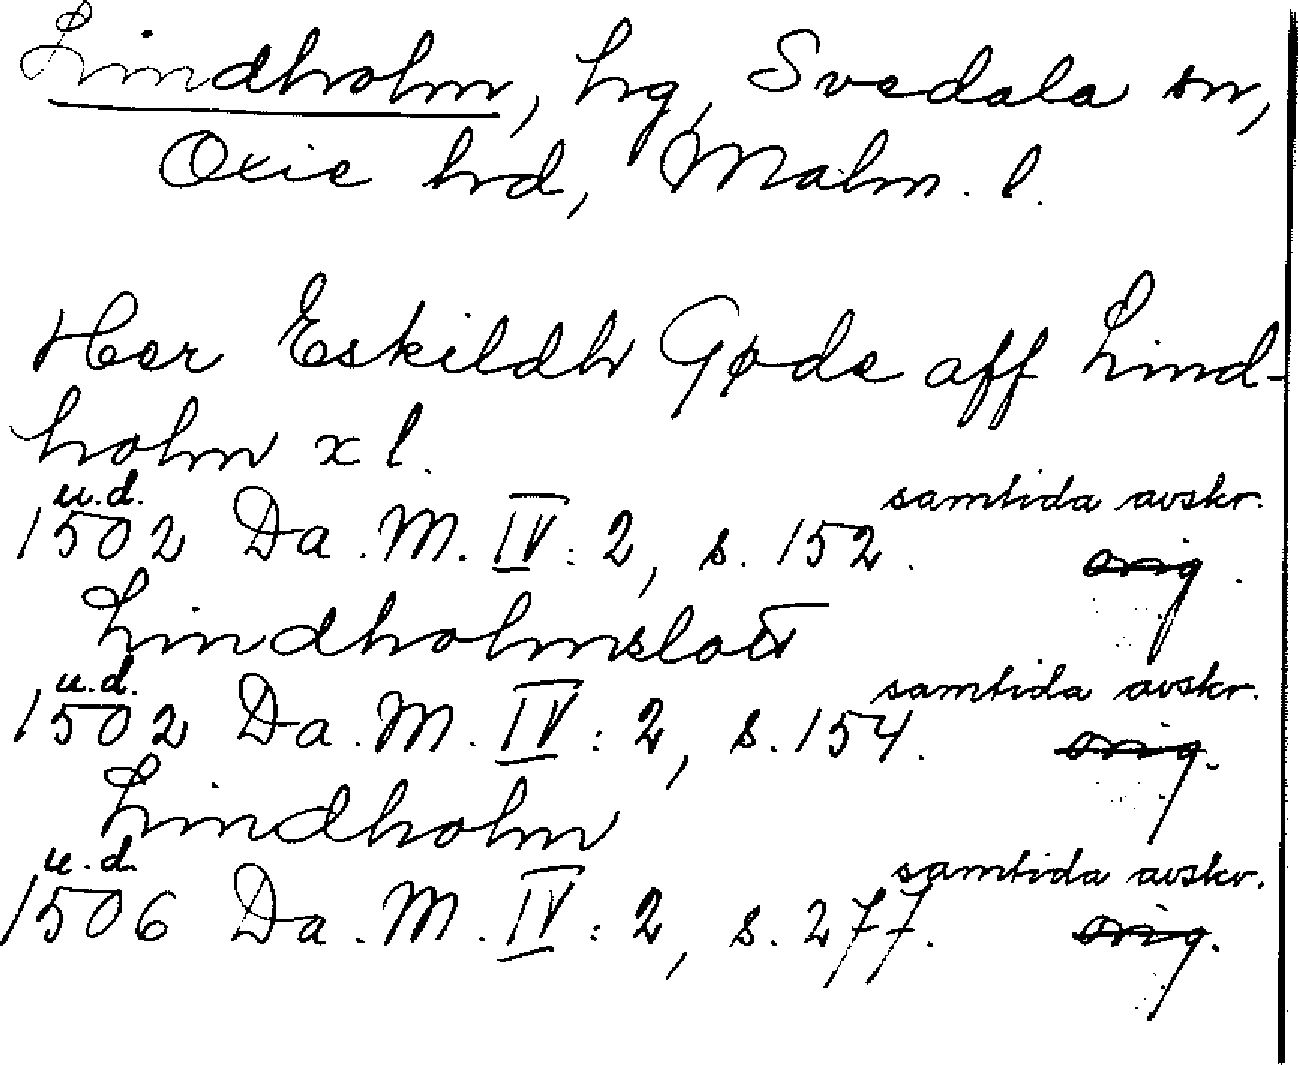 Lindholm, hg, Svedala sn,
Oxie hrd, Malm. l.
Her Eskildh Gøde aff Lind-
holm x l.
u.d. samtida avskr.
1502 Da. M. IV: 2, s. 152. orig.
Lindholmslott
u.d. samtida avskr.
1502 Da. M. IV: 2, s. 154. orig.
Lindholm
u.d. samtida avskr.
1506 Da. M. IV: 2, s. 277. orig.